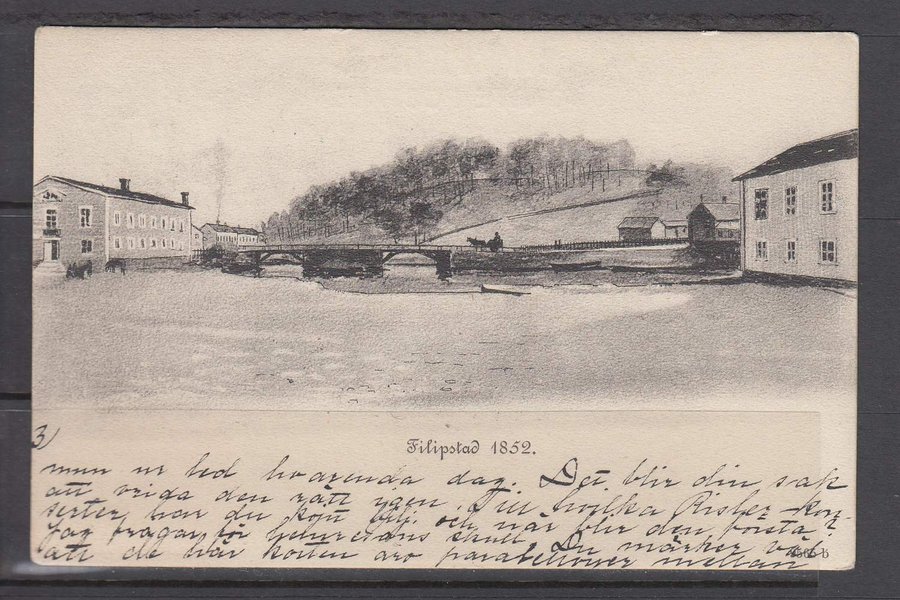 Filipstad 1852.
3)
mun ur led hvarenda dag. Det blir din sak
att vrida den rätt igen. Till hvilka Risberg-kon-
serter har du köpt bilj. och när blir den första?
Jag frågar för skull. Du märker väl
att de två korten äro parallellower mellan